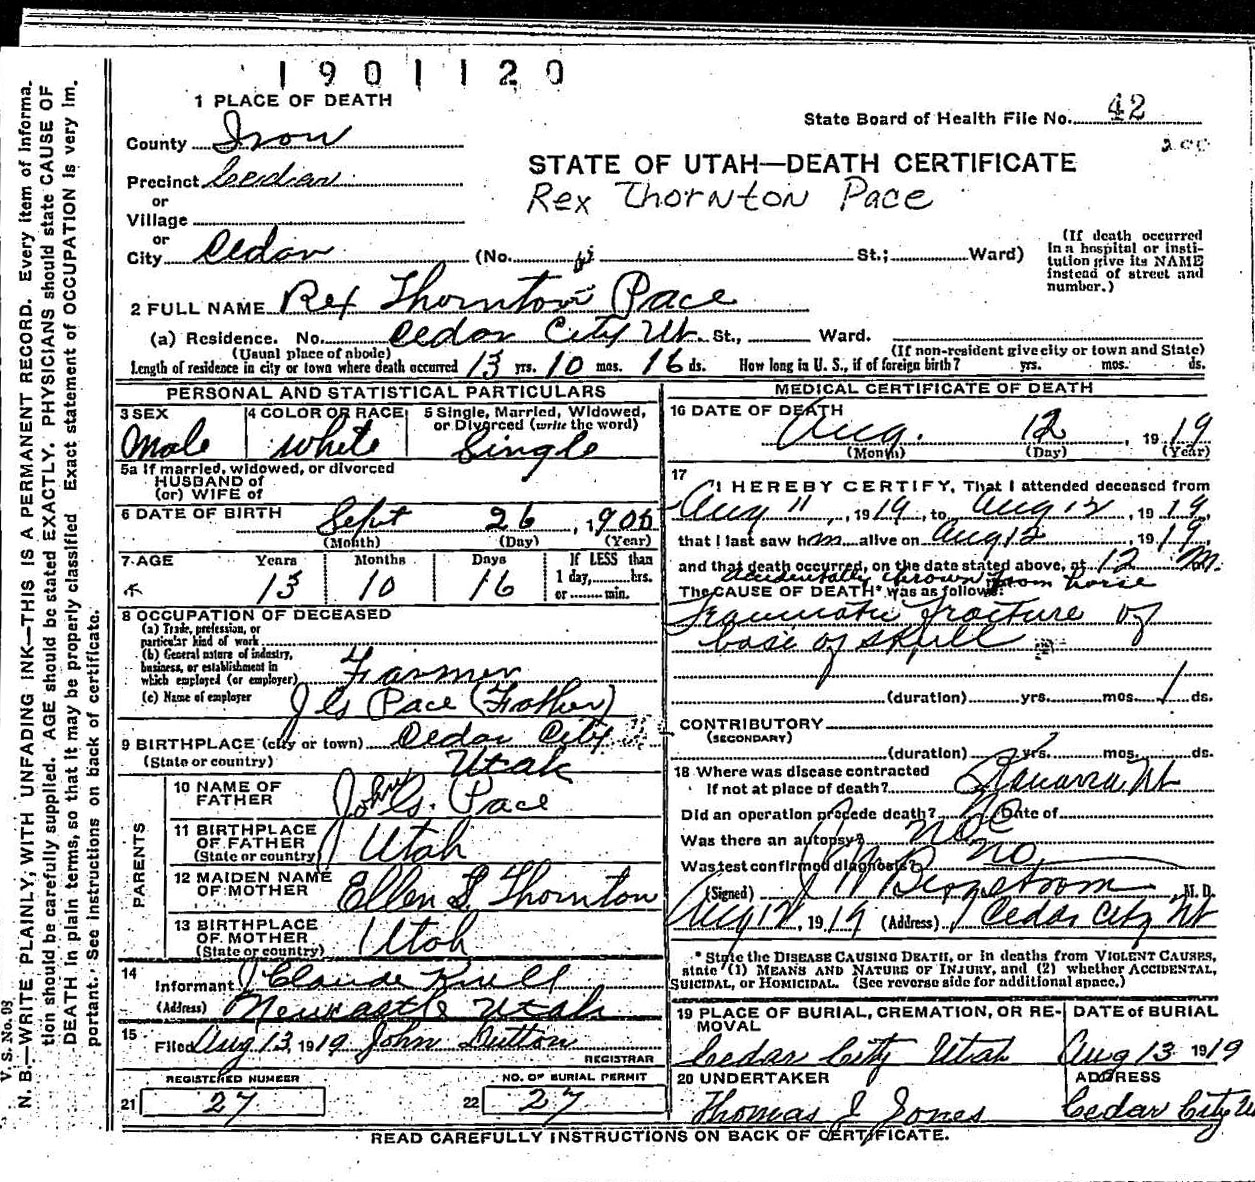 1901120
1 PLACE OF DEATH
State Board of Health File No. 42
County Iron
200
STATE OF UTAH—DEATH CERTIFICATE
Precinct Cedar
Rex Thornton Pace
or
Village
or
City Cedar (No. St.; Ward)
(If death occurred
in a hospital or insti-
tution give its NAME
instead of street and
number.)
2 FULL NAME Rex Thornton Pace
(a) Residence. No. Cedar City Ut. St., Ward.
(Usual place of abode) (If non-resident give city or town and State)
Length of residence in city or town where death occurred 13 yrs. 10 mos. 16 ds. How long in U. S., if of foreign birth? yrs. mos. ds.
PERSONAL AND STATISTICAL PARTICULARS
3 SEX
Male
4 COLOR OR RACE
White
5 Single, Married, Widowed,
or Divorced (write the word)
Single
5a If married, widowed, or divorced
HUSBAND of
(or) WIFE of
6 DATE OF BIRTH Sept 26, 1905
(Month) (Day) (Year)
7 AGE Years Months Days If LESS than
1 day, hrs.
or min.
13 10 16
8 OCCUPATION OF DECEASED
(a) Trade, profession, or
particular kind of work
(b) General nature of industry,
business, or establishment in
which employed (or employer) Farmer
(c) Name of employer J G Pace (Father)
9 BIRTHPLACE (city or town) Cedar City
(State or country) Utah
PARENTS
10 NAME OF
FATHER John G. Pace
11 BIRTHPLACE
OF FATHER
(State or country) Utah
12 MAIDEN NAME
OF MOTHER Ellen L. Thornton
13 BIRTHPLACE
OF MOTHER
(State or country) Utah
14
Informant Claude Knell
(Address) Newcastle Utah
15
Filed Aug 13, 1919 John Dutton
REGISTRAR
REGISTERED NUMBER
21 27
NO. OF BURIAL PERMIT
22 27
MEDICAL CERTIFICATE OF DEATH
16 DATE OF DEATH
Aug. 12, 1919
(Month) (Day) (Year)
17
I HEREBY CERTIFY, That I attended deceased from
Aug 11, 1919, to Aug 12, 1919,
that I last saw him alive on Aug 12, 1919,
and that death occurred, on the date stated above, at 12 M.
accidentally thrown from horse
The CAUSE OF DEATH* was as follows:
Traumatic fracture of
base of skull
(duration) yrs. mos. 1 ds.
CONTRIBUTORY
(SECONDARY)
(duration) yrs. mos. ds.
18 Where was disease contracted
If not at place of death?
Did an operation precede death? No Date of
Was there an autopsy? No
Was test confirmed diagnosis? No
(Signed) J W Bergstrom M. D.
Aug 12, 1919 (Address) Cedar City Ut
* State the DISEASE CAUSING DEATH, or in deaths from VIOLENT CAUSES,
state (1) MEANS AND NATURE OF INJURY, and (2) whether ACCIDENTAL,
SUICIDAL, or HOMICIDAL. (See reverse side for additional space.)
19 PLACE OF BURIAL, CREMATION, OR RE-
MOVAL
Cedar City Utah
DATE of BURIAL
Aug 13 1919
20 UNDERTAKER
Thomas J Jones
ADDRESS
Cedar City Ut
READ CAREFULLY INSTRUCTIONS ON BACK OF CERTIFICATE.
V. S. No. 98
N. B.—WRITE PLAINLY, WITH UNFADING INK—THIS IS A PERMANENT RECORD. Every item of informa-
tion should be carefully supplied. AGE should be stated EXACTLY. PHYSICIANS should state CAUSE OF
DEATH in plain terms, so that it may be properly classified. Exact statement of OCCUPATION is very im-
portant. See instructions on back of certificate.